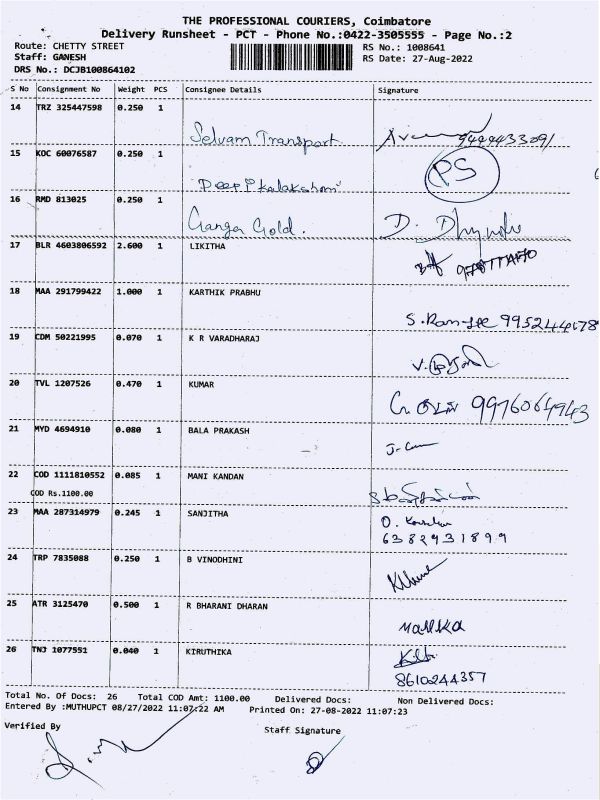 THE PROFESSIONAL COURIERS, Coimbatore
Delivery Runsheet - PCT - Phone No.:0422-3505555 - Page No.:2
Route: CHETTY STREET
RS No.: 1008641
Staff: GANESH
RS Date: 27-Aug-2022
DRS No.: DCJB100864102
S No Consignment No Weight PCS Consignee Details Signature
14 TRZ 325447598 0.250 1
Selvam Transport 9444433091
15 KOC 60076587 0.250 1 PS
Deepi kalakshmi
16 RMD 813025 0.250 1
Ganga Gold. D.
17 BLR 4603806592 2.600 1 LIKITHA
18 MAA 291799422 1.000 1 KARTHIK PRABHU
S. 9952444678
19 CDM 50221995 0.070 1 K R VARADHARAJ
20 TVL 1207526 0.470 1 KUMAR
9976064943
21 MYD 4694910 0.080 1 BALA PRAKASH
22 COD 1111810552 0.085 1 MANI KANDAN
COD Rs.1100.00
23 MAA 287314979 0.245 1 SANJITHA
6382931899
24 TRP 7835088 0.250 1 B VINODHINI
25 ATR 3125470 0.500 1 R BHARANI DHARAN
Mallika
26 TNJ 1077551 0.040 1 KIRUTHIKA
8610244357
Total No. Of Docs: 26 Total COD Amt: 1100.00 Delivered Docs: Non Delivered Docs:
Entered By :MUTHUPCT 08/27/2022 11:07:22 AM Printed On: 27-08-2022 11:07:23
Verified By
Staff Signature